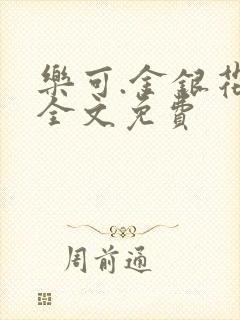 樂可.金銀花
全文免費
周前通